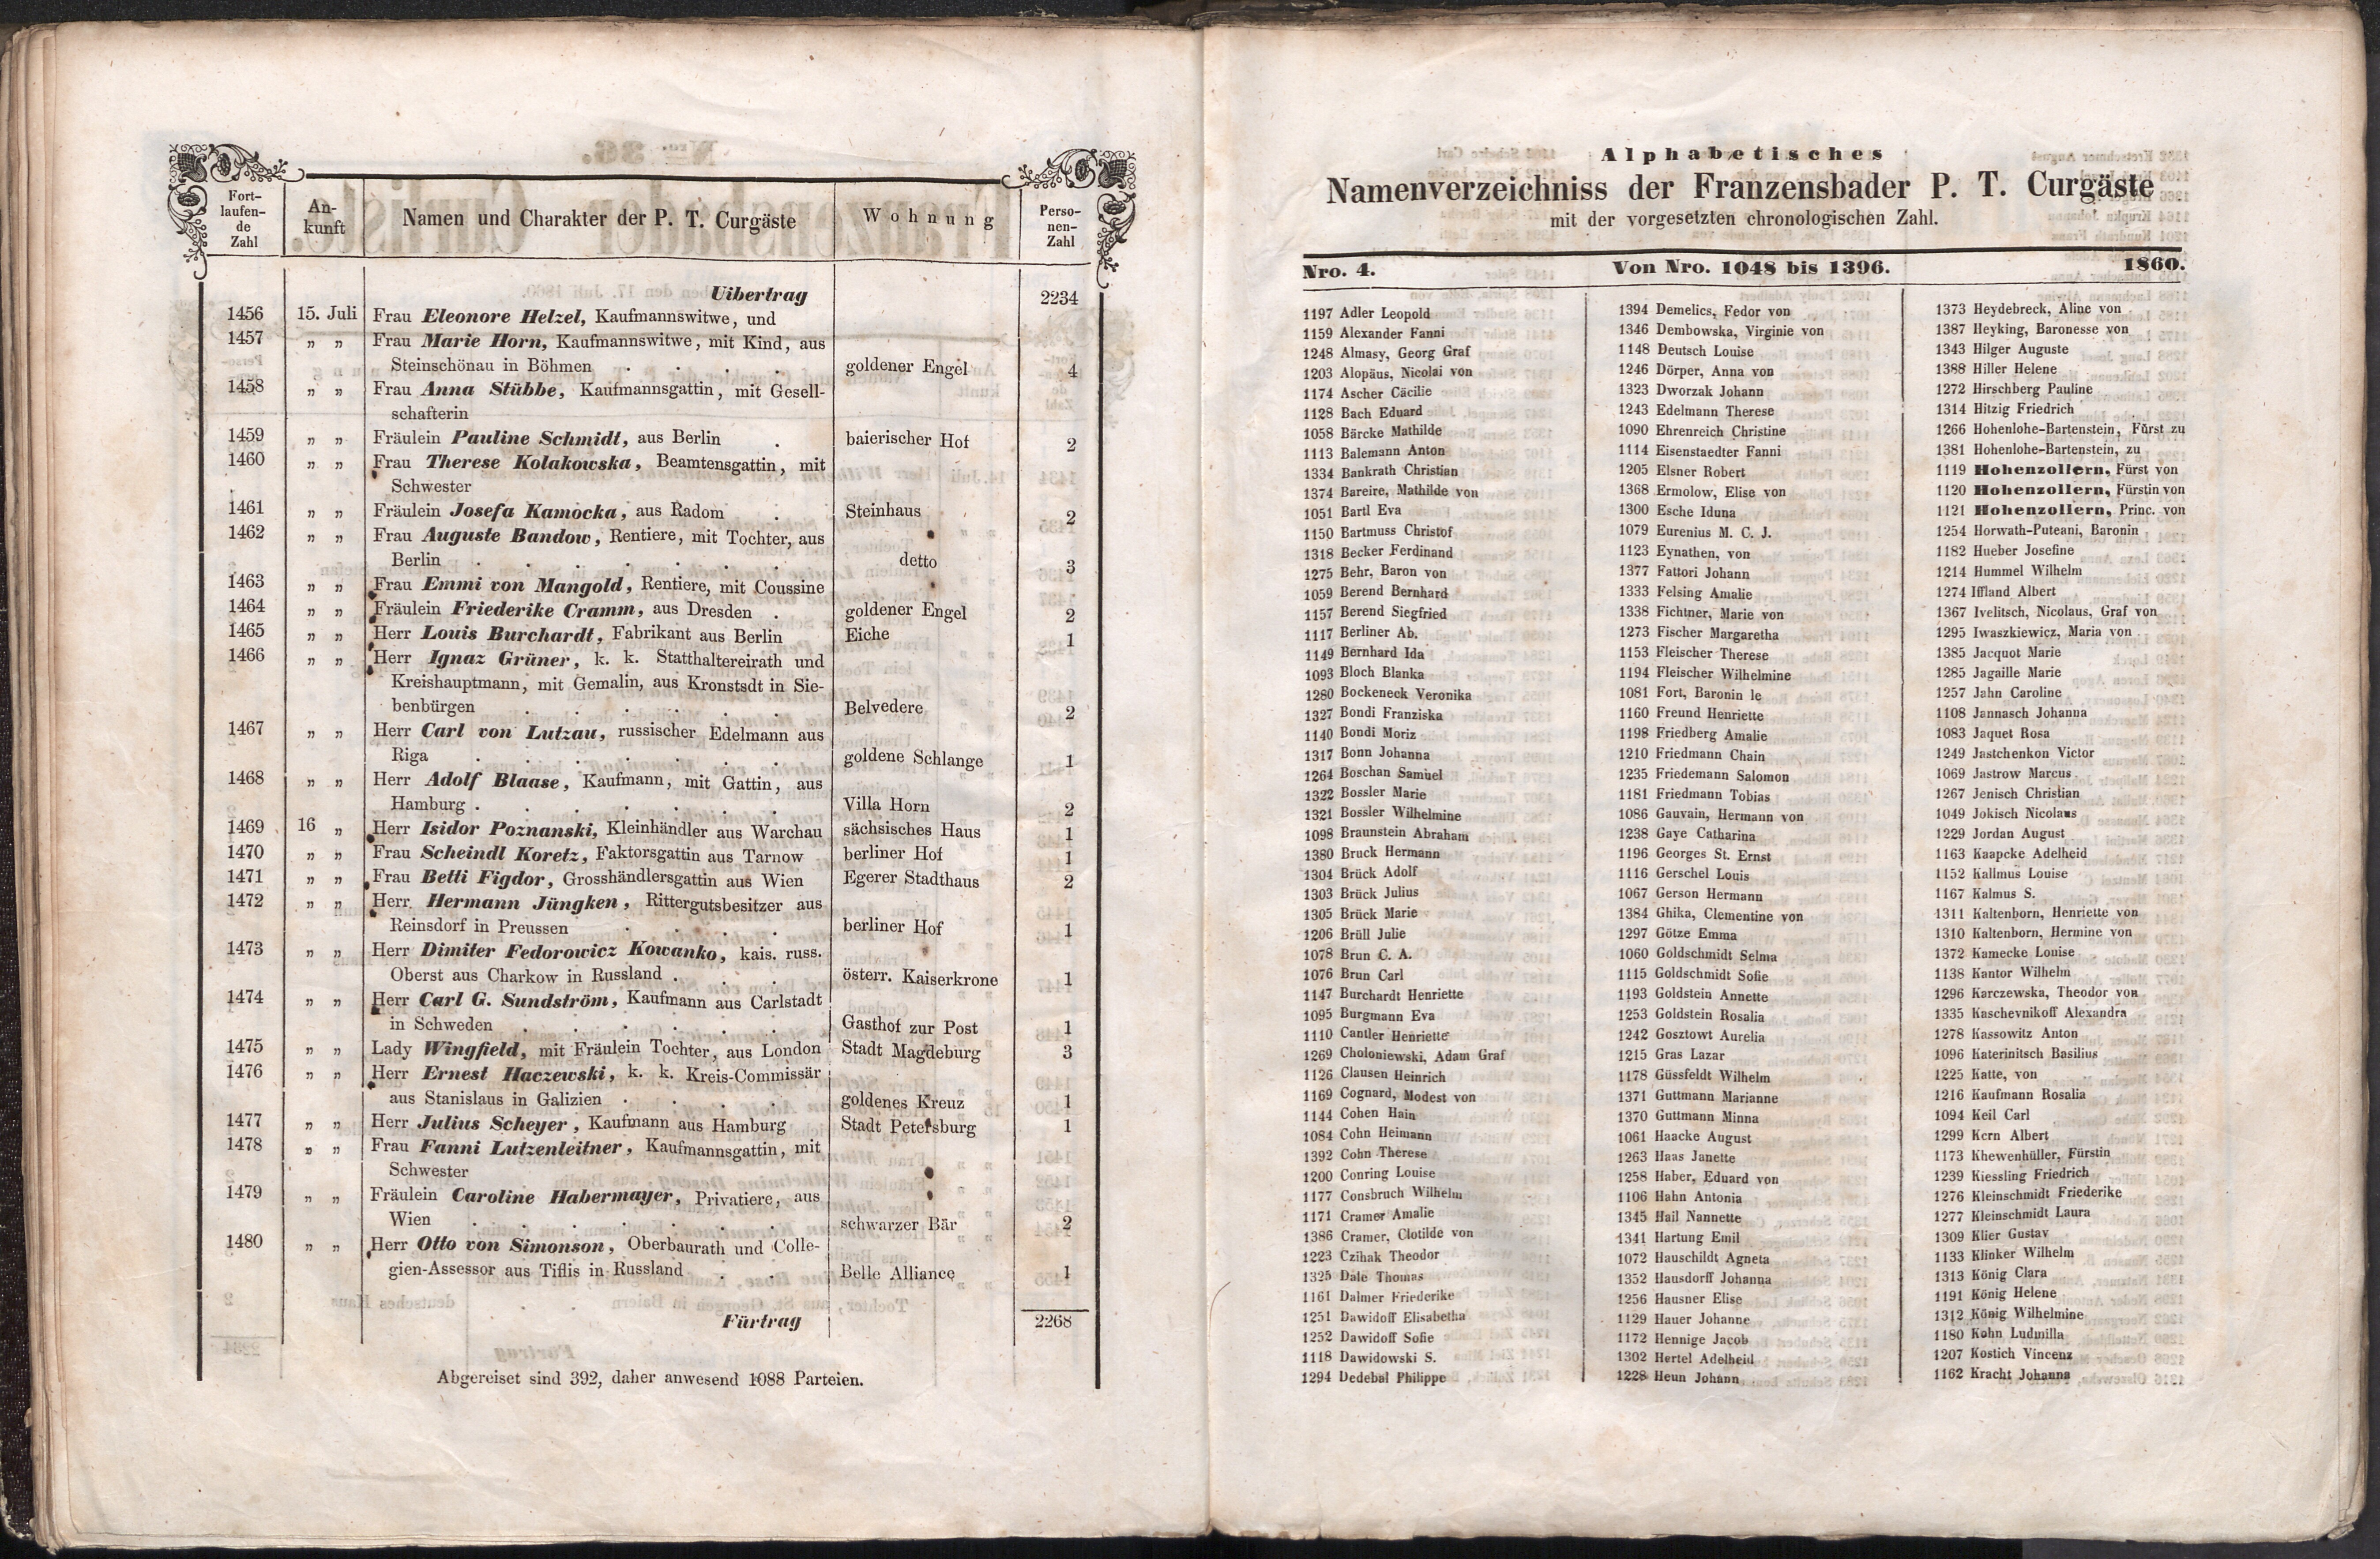 Fort-laufen-de Zahl An-kunft Namen und Charakter der P. T. Curgäste Wohnung Perso-nen-Zahl
Uibertrag 2234
1456 15. Juli Frau Eleonore Helzel, Kaufmannswitwe, und
1457 „ „ Frau Marie Horn, Kaufmannswitwe, mit Kind, aus
Steinschönau in Böhmen . . . . goldener Engel 4
1458 „ „ Frau Anna Stübbe, Kaufmannsgattin, mit Gesell-
schafterin
1459 „ „ Fräulein Pauline Schmidt, aus Berlin . baierischer Hof 2
1460 „ „ Frau Therese Kolakowska, Beamtensgattin, mit
Schwester
1461 „ „ Fräulein Josefa Kamocka, aus Radom . Steinhaus 2
1462 „ „ Frau Auguste Bandow, Rentiere, mit Tochter, aus
Berlin . . . . . . . detto 3
1463 „ „ Frau Emmi von Mangold, Rentiere, mit Coussine
1464 „ „ Fräulein Friederike Cramm, aus Dresden . goldener Engel 2
1465 „ „ Herr Louis Burchardt, Fabrikant aus Berlin Eiche 1
1466 „ „ Herr Ignaz Grüner, k. k. Statthaltereirath und
Kreishauptmann, mit Gemalin, aus Kronstsdt in Sie-
benbürgen . . . . . . Belvedere 2
1467 „ „ Herr Carl von Lutzau, russischer Edelmann aus
Riga . . . . . . . goldene Schlange 1
1468 „ „ Herr Adolf Blaase, Kaufmann, mit Gattin, aus
Hamburg . . . . . . . Villa Horn 2
1469 16 „ Herr Isidor Poznanski, Kleinhändler aus Warchau sächsisches Haus 1
1470 „ „ Frau Scheindl Koretz, Faktorsgattin aus Tarnow berliner Hof 1
1471 „ „ Frau Betti Figdor, Grosshändlersgattin aus Wien Egerer Stadthaus 2
1472 „ „ Herr Hermann Jüngken, Rittergutsbesitzer aus
Reinsdorf in Preussen . . . . berliner Hof 1
1473 „ „ Herr Dimiter Fedorowicz Kowanko, kais. russ.
Oberst aus Charkow in Russland . . . österr. Kaiserkrone 1
1474 „ „ Herr Carl G. Sundström, Kaufmann aus Carlstadt
in Schweden . . . . . . Gasthof zur Post 1
1475 „ „ Lady Wingfield, mit Fräulein Tochter, aus London Stadt Magdeburg 3
1476 „ „ Herr Ernest Haczewski, k. k. Kreis-Commissär
aus Stanislaus in Galizien . . . . goldenes Kreuz 1
1477 „ „ Herr Julius Scheyer, Kaufmann aus Hamburg Stadt Petersburg 1
1478 „ „ Frau Fanni Lutzenleitner, Kaufmannsgattin, mit
Schwester
1479 „ „ Fräulein Caroline Habermayer, Privatiere, aus
Wien . . . . . . . schwarzer Bär 2
1480 „ „ Herr Otto von Simonson, Oberbaurath und Colle-
gien-Assessor aus Tiflis in Russland . . Belle Alliance 1
Fürtrag 2268
Abgereiset sind 392, daher anwesend 1088 Parteien.
Alphabetisches
Namenverzeichniss der Franzensbader P. T. Curgäste
mit der vorgesetzten chronologischen Zahl.
Nro. 4. Von Nro. 1048 bis 1396. 1860.
1197 Adler Leopold
1159 Alexander Fanni
1248 Almasy, Georg Graf
1203 Alopäus, Nicolai von
1174 Ascher Cäcilie
1128 Bach Eduard
1058 Bärcke Mathilde
1113 Balemann Anton
1334 Bankrath Christian
1374 Bareire, Mathilde von
1051 Bartl Eva
1150 Bartmuss Christof
1318 Becker Ferdinand
1275 Behr, Baron von
1059 Berend Bernhard
1157 Berend Siegfried
1117 Berliner Ab.
1149 Bernhard Ida
1093 Bloch Blanka
1280 Bockeneck Veronika
1327 Bondi Franziska
1140 Bondi Moriz
1317 Bonn Johanna
1264 Boschan Samuel
1322 Bossler Marie
1321 Bossler Wilhelmine
1098 Braunstein Abraham
1380 Bruck Hermann
1304 Brück Adolf
1303 Brück Julius
1305 Brück Marie
1206 Brüll Julie
1078 Brun C. A.
1076 Brun Carl
1147 Burchardt Henriette
1095 Burgmann Eva
1110 Cantler Henriette
1269 Choloniewski, Adam Graf
1126 Clausen Heinrich
1169 Cognard, Modest von
1144 Cohen Hain
1084 Cohn Heimann
1392 Cohn Therese
1200 Conring Louise
1177 Consbruch Wilhelm
1171 Cramer Amalie
1386 Cramer, Clotilde von
1223 Czihak Theodor
1325 Dale Thomas
1161 Dalmer Friederike
1251 Dawidoff Elisabetha
1252 Dawidoff Sofie
1118 Dawidowski S.
1294 Dedebal Philippe
1394 Demelics, Fedor von
1346 Dembowska, Virginie von
1148 Deutsch Louise
1246 Dörper, Anna von
1323 Dworzak Johann
1243 Edelmann Therese
1090 Ehrenreich Christine
1114 Eisenstaedter Fanni
1205 Elsner Robert
1368 Ermolow, Elise von
1300 Esche Iduna
1079 Eurenius M. C. J.
1123 Eynathen, von
1377 Fattori Johann
1333 Felsing Amalie
1338 Fichtner, Marie von
1273 Fischer Margaretha
1153 Fleischer Therese
1194 Fleischer Wilhelmine
1081 Fort, Baronin le
1160 Freund Henriette
1198 Friedberg Amalie
1210 Friedmann Chain
1235 Friedemann Salomon
1181 Friedmann Tobias
1086 Gauvain, Hermann von
1238 Gaye Catharina
1196 Georges St. Ernst
1116 Gerschel Louis
1067 Gerson Hermann
1384 Ghika, Clementine von
1297 Götze Emma
1060 Goldschmidt Selma
1115 Goldschmidt Sofie
1193 Goldstein Annette
1253 Goldstein Rosalia
1242 Gosztowt Aurelia
1215 Gras Lazar
1178 Güssfeldt Wilhelm
1371 Guttmann Marianne
1370 Guttmann Minna
1061 Haacke August
1263 Haas Janette
1258 Haber, Eduard von
1106 Hahn Antonia
1345 Hail Nannette
1341 Hartung Emil
1072 Hauschildt Agneta
1352 Hausdorff Johanna
1256 Hausner Elise
1129 Hauer Johanne
1172 Hennige Jacob
1302 Hertel Adelheid
1228 Heun Johann
1373 Heydebreck, Aline von
1387 Heyking, Baronesse von
1343 Hilger Auguste
1388 Hiller Helene
1272 Hirschberg Pauline
1314 Hitzig Friedrich
1266 Hohenlohe-Bartenstein, Fürst zu
1381 Hohenlohe-Bartenstein, zu
1119 Hohenzollern, Fürst von
1120 Hohenzollern, Fürstin von
1121 Hohenzollern, Princ. von
1254 Horwath-Puteani, Baronin
1182 Hueber Josefine
1214 Hummel Wilhelm
1274 Iffland Albert
1367 Ivelitsch, Nicolaus, Graf von
1295 Iwaszkiewicz, Maria von
1385 Jacquot Marie
1285 Jagaille Marie
1257 Jahn Caroline
1108 Jannasch Johanna
1083 Jaquet Rosa
1249 Jastchenkon Victor
1069 Jastrow Marcus
1267 Jenisch Christian
1049 Jokisch Nicolaus
1229 Jordan August
1163 Kaapcke Adelheid
1152 Kallmus Louise
1167 Kalmus S.
1311 Kaltenborn, Henriette von
1310 Kaltenborn, Hermine von
1372 Kamecke Louise
1138 Kantor Wilhelm
1296 Karczewska, Theodor von
1335 Kaschevnikoff Alexandra
1278 Kassowitz Anton
1096 Katerinitsch Basilius
1225 Katte, von
1216 Kaufmann Rosalia
1094 Keil Carl
1299 Kern Albert
1173 Khewenhüller, Fürstin
1239 Kiessling Friedrich
1276 Kleinschmidt Friederike
1277 Kleinschmidt Laura
1309 Klier Gustav
1133 Klinker Wilhelm
1313 König Clara
1191 König Helene
1312 König Wilhelmine
1180 Kohn Ludmilla
1207 Kostich Vincenz
1162 Kracht Johanna